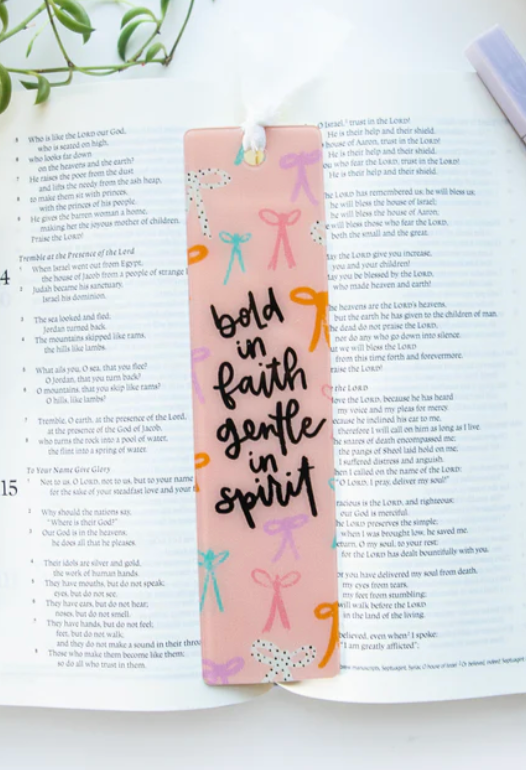 5 Who is like the LORD our God,
who is seated on high,
6 who looks far down
on the heavens and the earth?
7 He raises the poor from the dust
and lifts the needy from the ash heap,
8 to make them sit with princes,
with the princes of his people.
9 He gives the barren woman a home,
making her the joyous mother of children.
Praise the LORD!
Tremble at the Presence of the Lord
4
1 When Israel went out from Egypt,
the house of Jacob from a people of strange l
2 Judah became his sanctuary,
Israel his dominion.
3 The sea looked and fled,
Jordan turned back.
4 The mountains skipped like rams,
the hills like lambs.
5 What ails you, O sea, that you flee?
O Jordan, that you turn back?
6 O mountains, that you skip like rams?
O hills, like lambs?
7 Tremble, O earth, at the presence of the Lord,
at the presence of the God of Jacob,
8 who turns the rock into a pool of water,
the flint into a spring of water.
To Your Name Give Glory
15
1 Not to us, O LORD, not to us, but to your name
for the sake of your steadfast love and your f
2 Why should the nations say,
"Where is their God?"
3 Our God is in the heavens;
he does all that he pleases.
4 Their idols are silver and gold,
the work of human hands.
5 They have mouths, but do not speak;
eyes, but do not see.
6 They have ears, but do not hear;
noses, but do not smell.
7 They have hands, but do not feel;
feet, but do not walk;
and they do not make a sound in their thro
8 Those who make them become like them;
so do all who trust in them.
bold
in
faith
gentle
in
spirit
O Israel, trust in the LORD!
He is their help and their shield.
house of Aaron, trust in the LORD!
He is their help and their shield.
who fear the LORD, trust in the LORD!
He is their help and their shield.
he LORD has remembered us; he will bless us;
he will bless the house of Israel;
he will bless the house of Aaron;
e will bless those who fear the LORD,
both the small and the great.
ay the LORD give you increase,
you and your children!
ay you be blessed by the LORD,
who made heaven and earth!
he heavens are the LORD's heavens,
but the earth he has given to the children of man.
he dead do not praise the LORD,
nor do any who go down into silence.
ut we will bless the LORD
from this time forth and forevermore.
raise the LORD!
the LORD
love the LORD, because he has heard
my voice and my pleas for mercy.
ecause he inclined his ear to me,
therefore I will call on him as long as I live.
he snares of death encompassed me;
the pangs of Sheol laid hold on me;
I suffered distress and anguish.
hen I called on the name of the LORD:
"O LORD, I pray, deliver my soul!"
racious is the LORD, and righteous;
our God is merciful.
he LORD preserves the simple;
when I was brought low, he saved me.
eturn, O my soul, to your rest;
for the LORD has dealt bountifully with you.
or you have delivered my soul from death,
my eyes from tears,
my feet from stumbling;
will walk before the LORD
in the land of the living.
believed, even when I spoke:
"I am greatly afflicted";